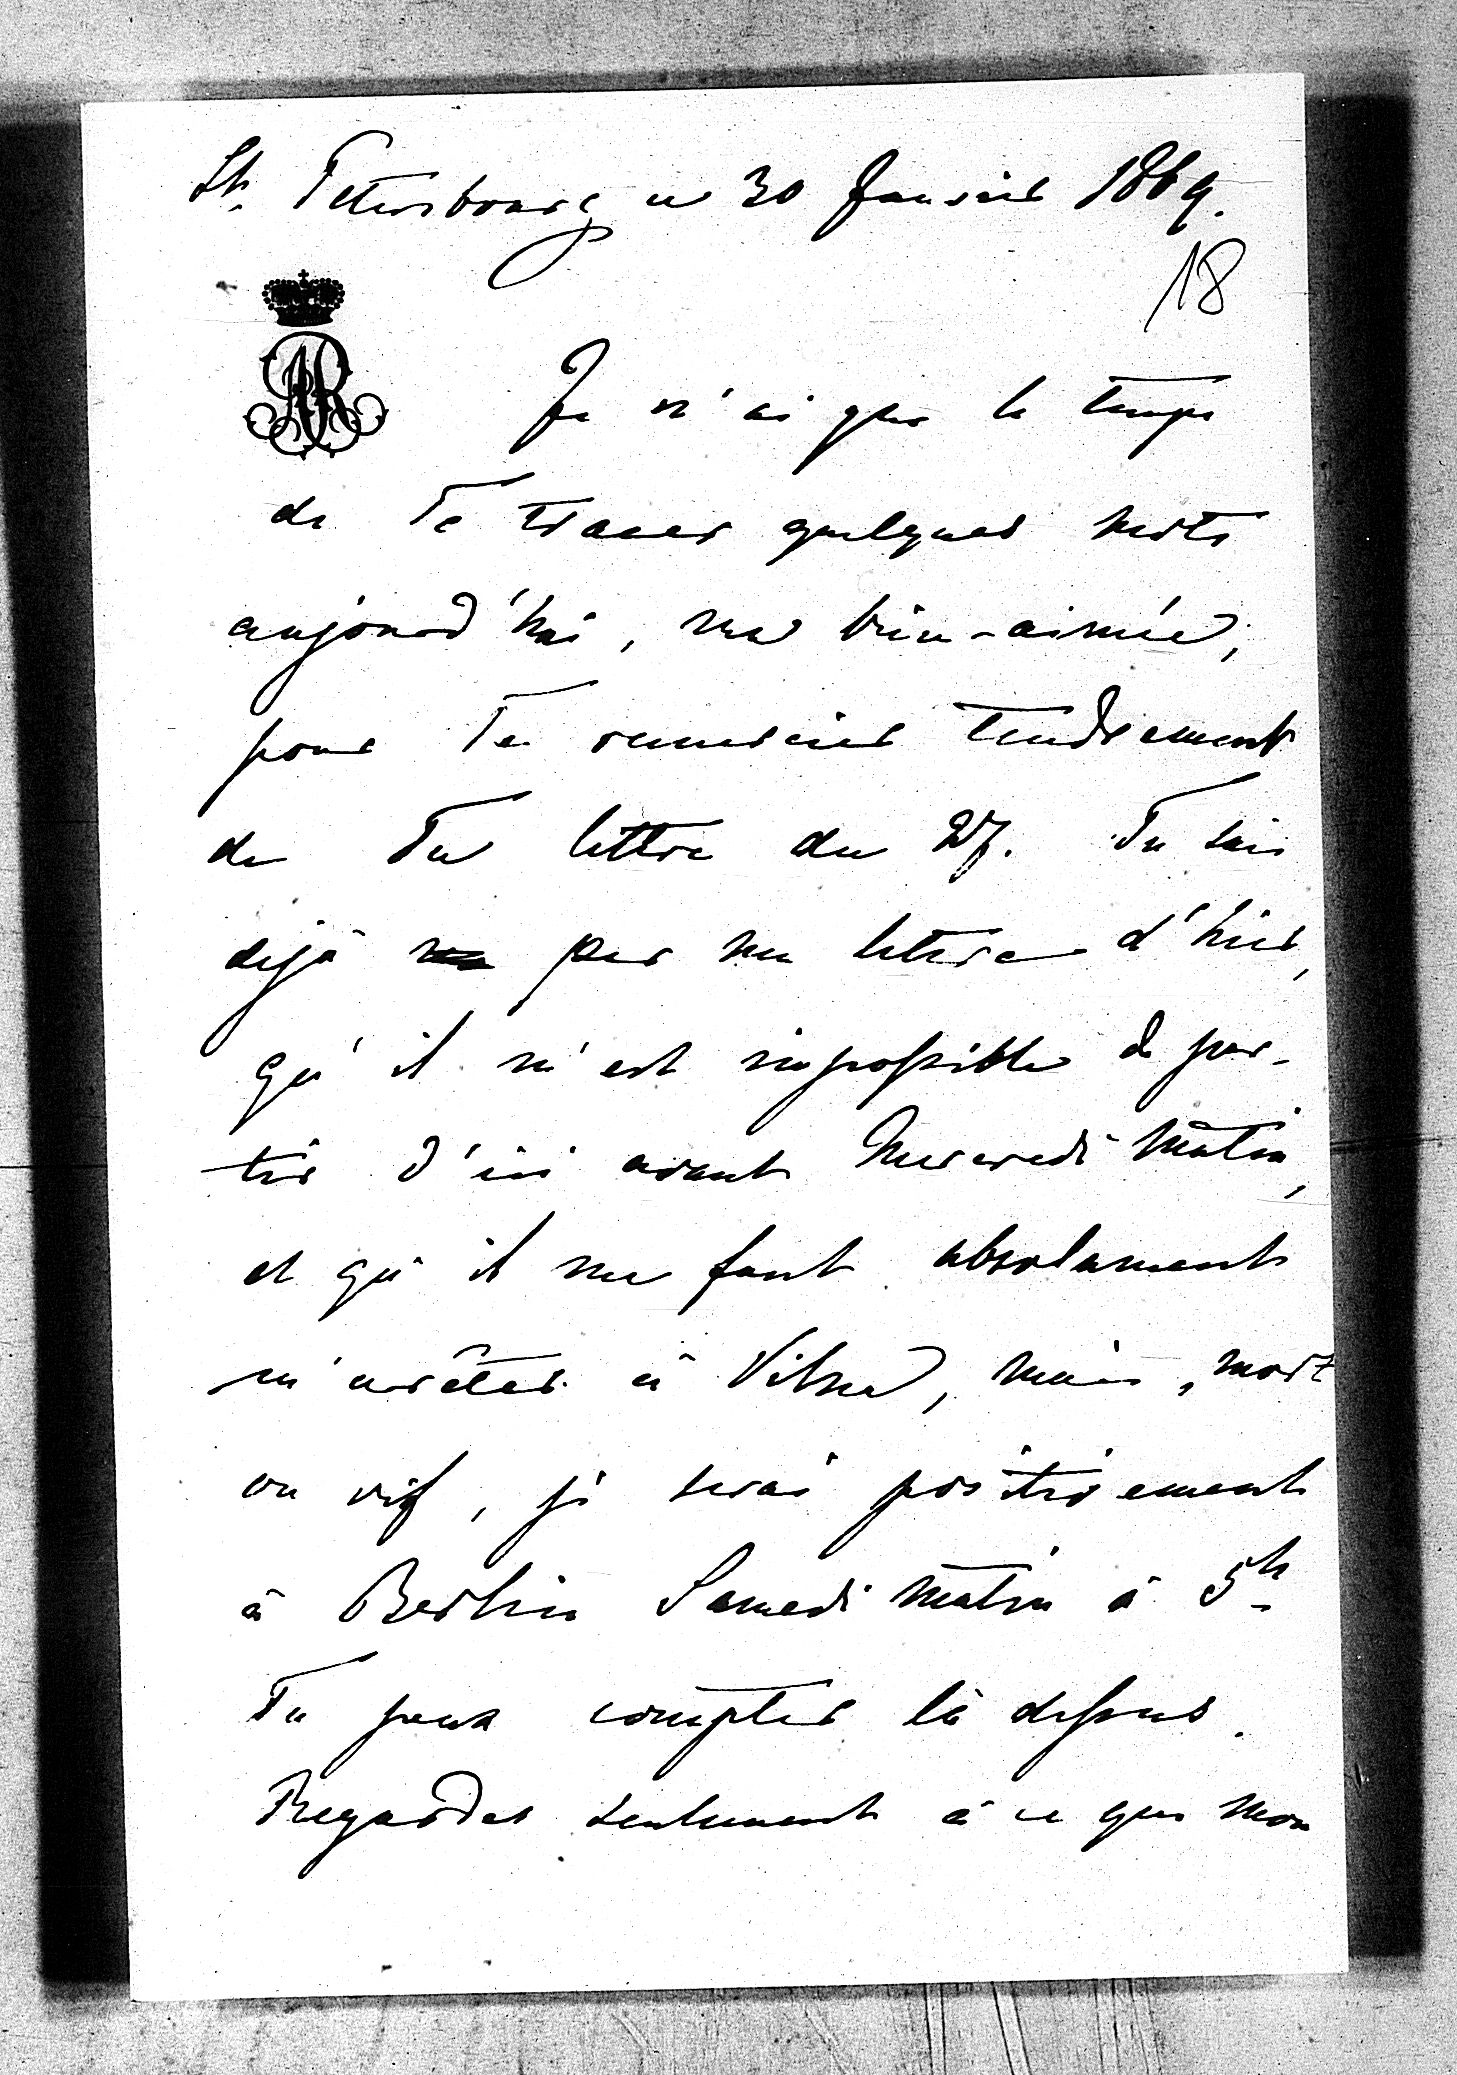 St. Petersbourg ce 30 Janvier 1869.
18
AR
Je n'ai que le temps
de Te tracer quelques mots
aujourd'hui, ma bien-aimée,
pour Te remercier tendrement
de Ta lettre du 27. Tu sais
dejà par ma lettre d'hier,
qu'il m'est impossible de par-
tir d'ici avant Mercredi matin,
et qu'il me faut absolument
m'arêter à Vilna, mais, mort
ou vif, je serai positivement
à Berlin Samedi matin à 5h
Tu peux compter là dessus.
Regardes seulement à ce que mon